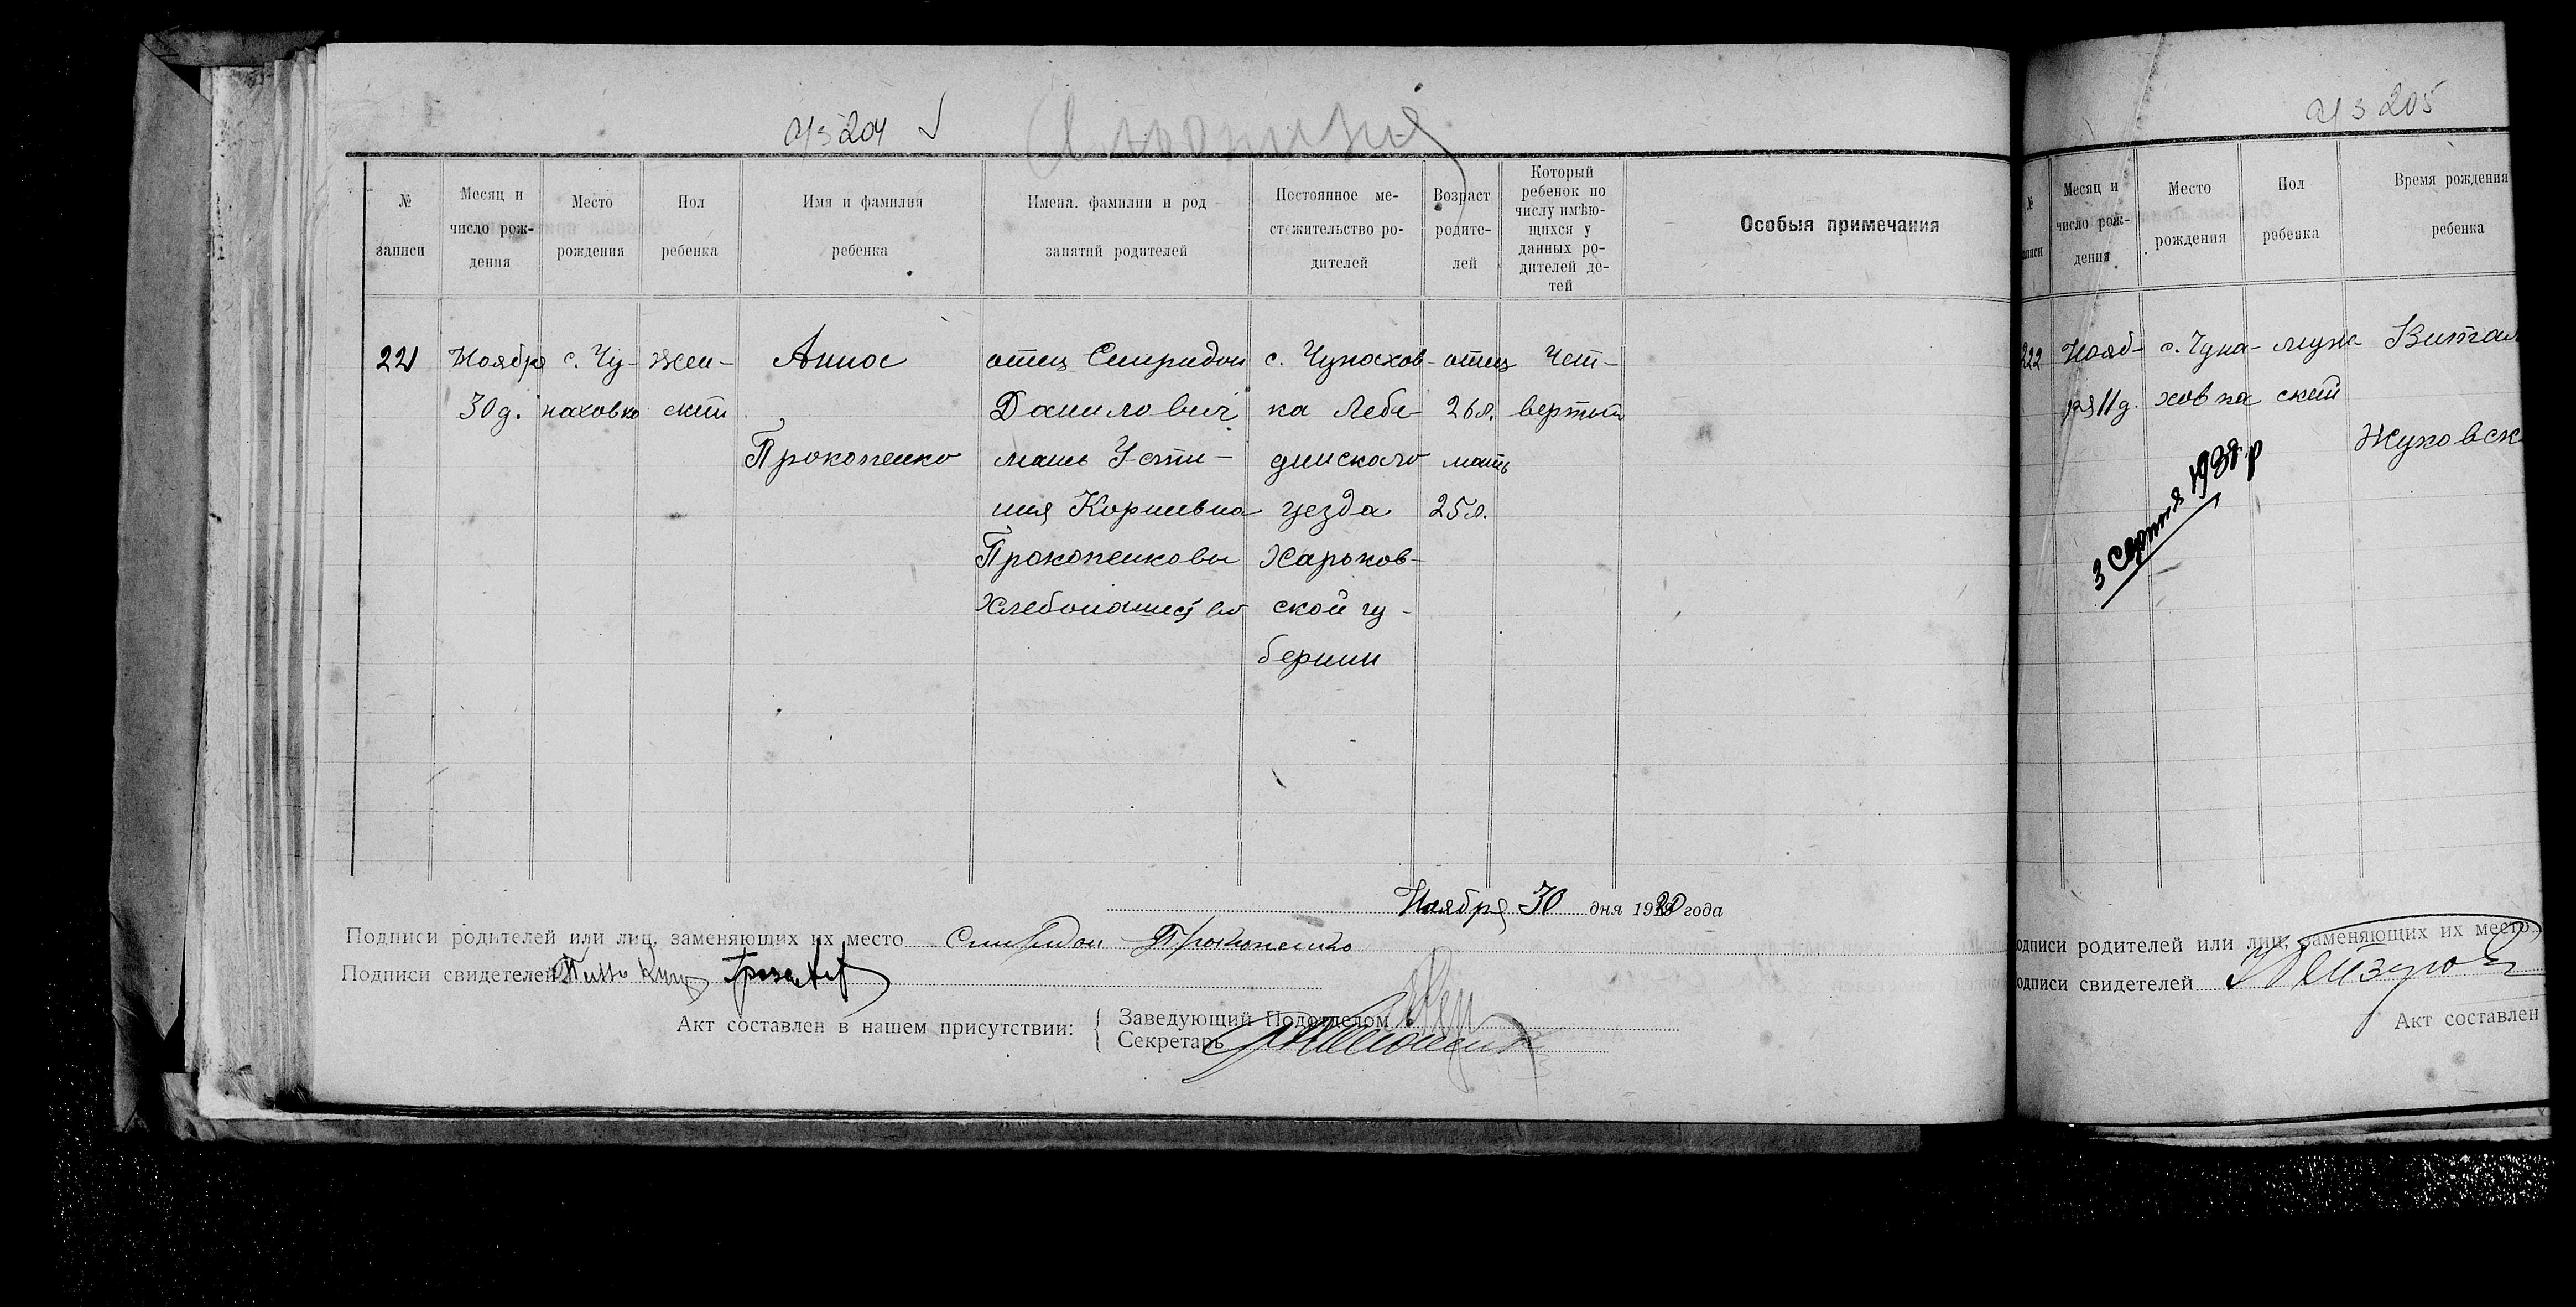 204
№
записи
Месяц и
число рож-
дения
Место
рождения
Пол
ребенка
Имя и фамилия
ребенка
Имена. фамилии и род
занятий родителей
Постоянное ме-
стожительство ро-
дителей
Возраст
родите-
лей
Который
ребенок по
числу имѣю-
щихся у
данных ро-
дителей де-
тей
Особыя примечания
221
Ноября
30 д.
с. Чу-
паховка
Жен-
ский
Анна
Прокопенко
отец Спиридон
Данилович
мать Усти-
ния Корнивна
Прокопенковы
с. Чупахов-
ка Лебе-
динского
уезда
Харьков-
ской гу-
бернии
отец
26 л.
мать
25 л.
Чет-
вертый
Ноября 30 дня 1920 года
Подписи родителей или лиц, заменяющих их место Спиридон Прокопенко
Подписи свидетелей
Акт составлен в нашем присутствии:
Заведующий Подотделом
Секретарь
205
записи
Месяц и
число рож-
дения
Место
рождения
Пол
ребенка
Время рождения
ребенка
222
Нояб-
ря 11 д.
с. Чупа-
ховка
муж-
ской
Витал
Жуковск
3 Серпня 1938 р
одписи родителей или лиц, заменяющих их место
одписи свидетелей
Акт составлен